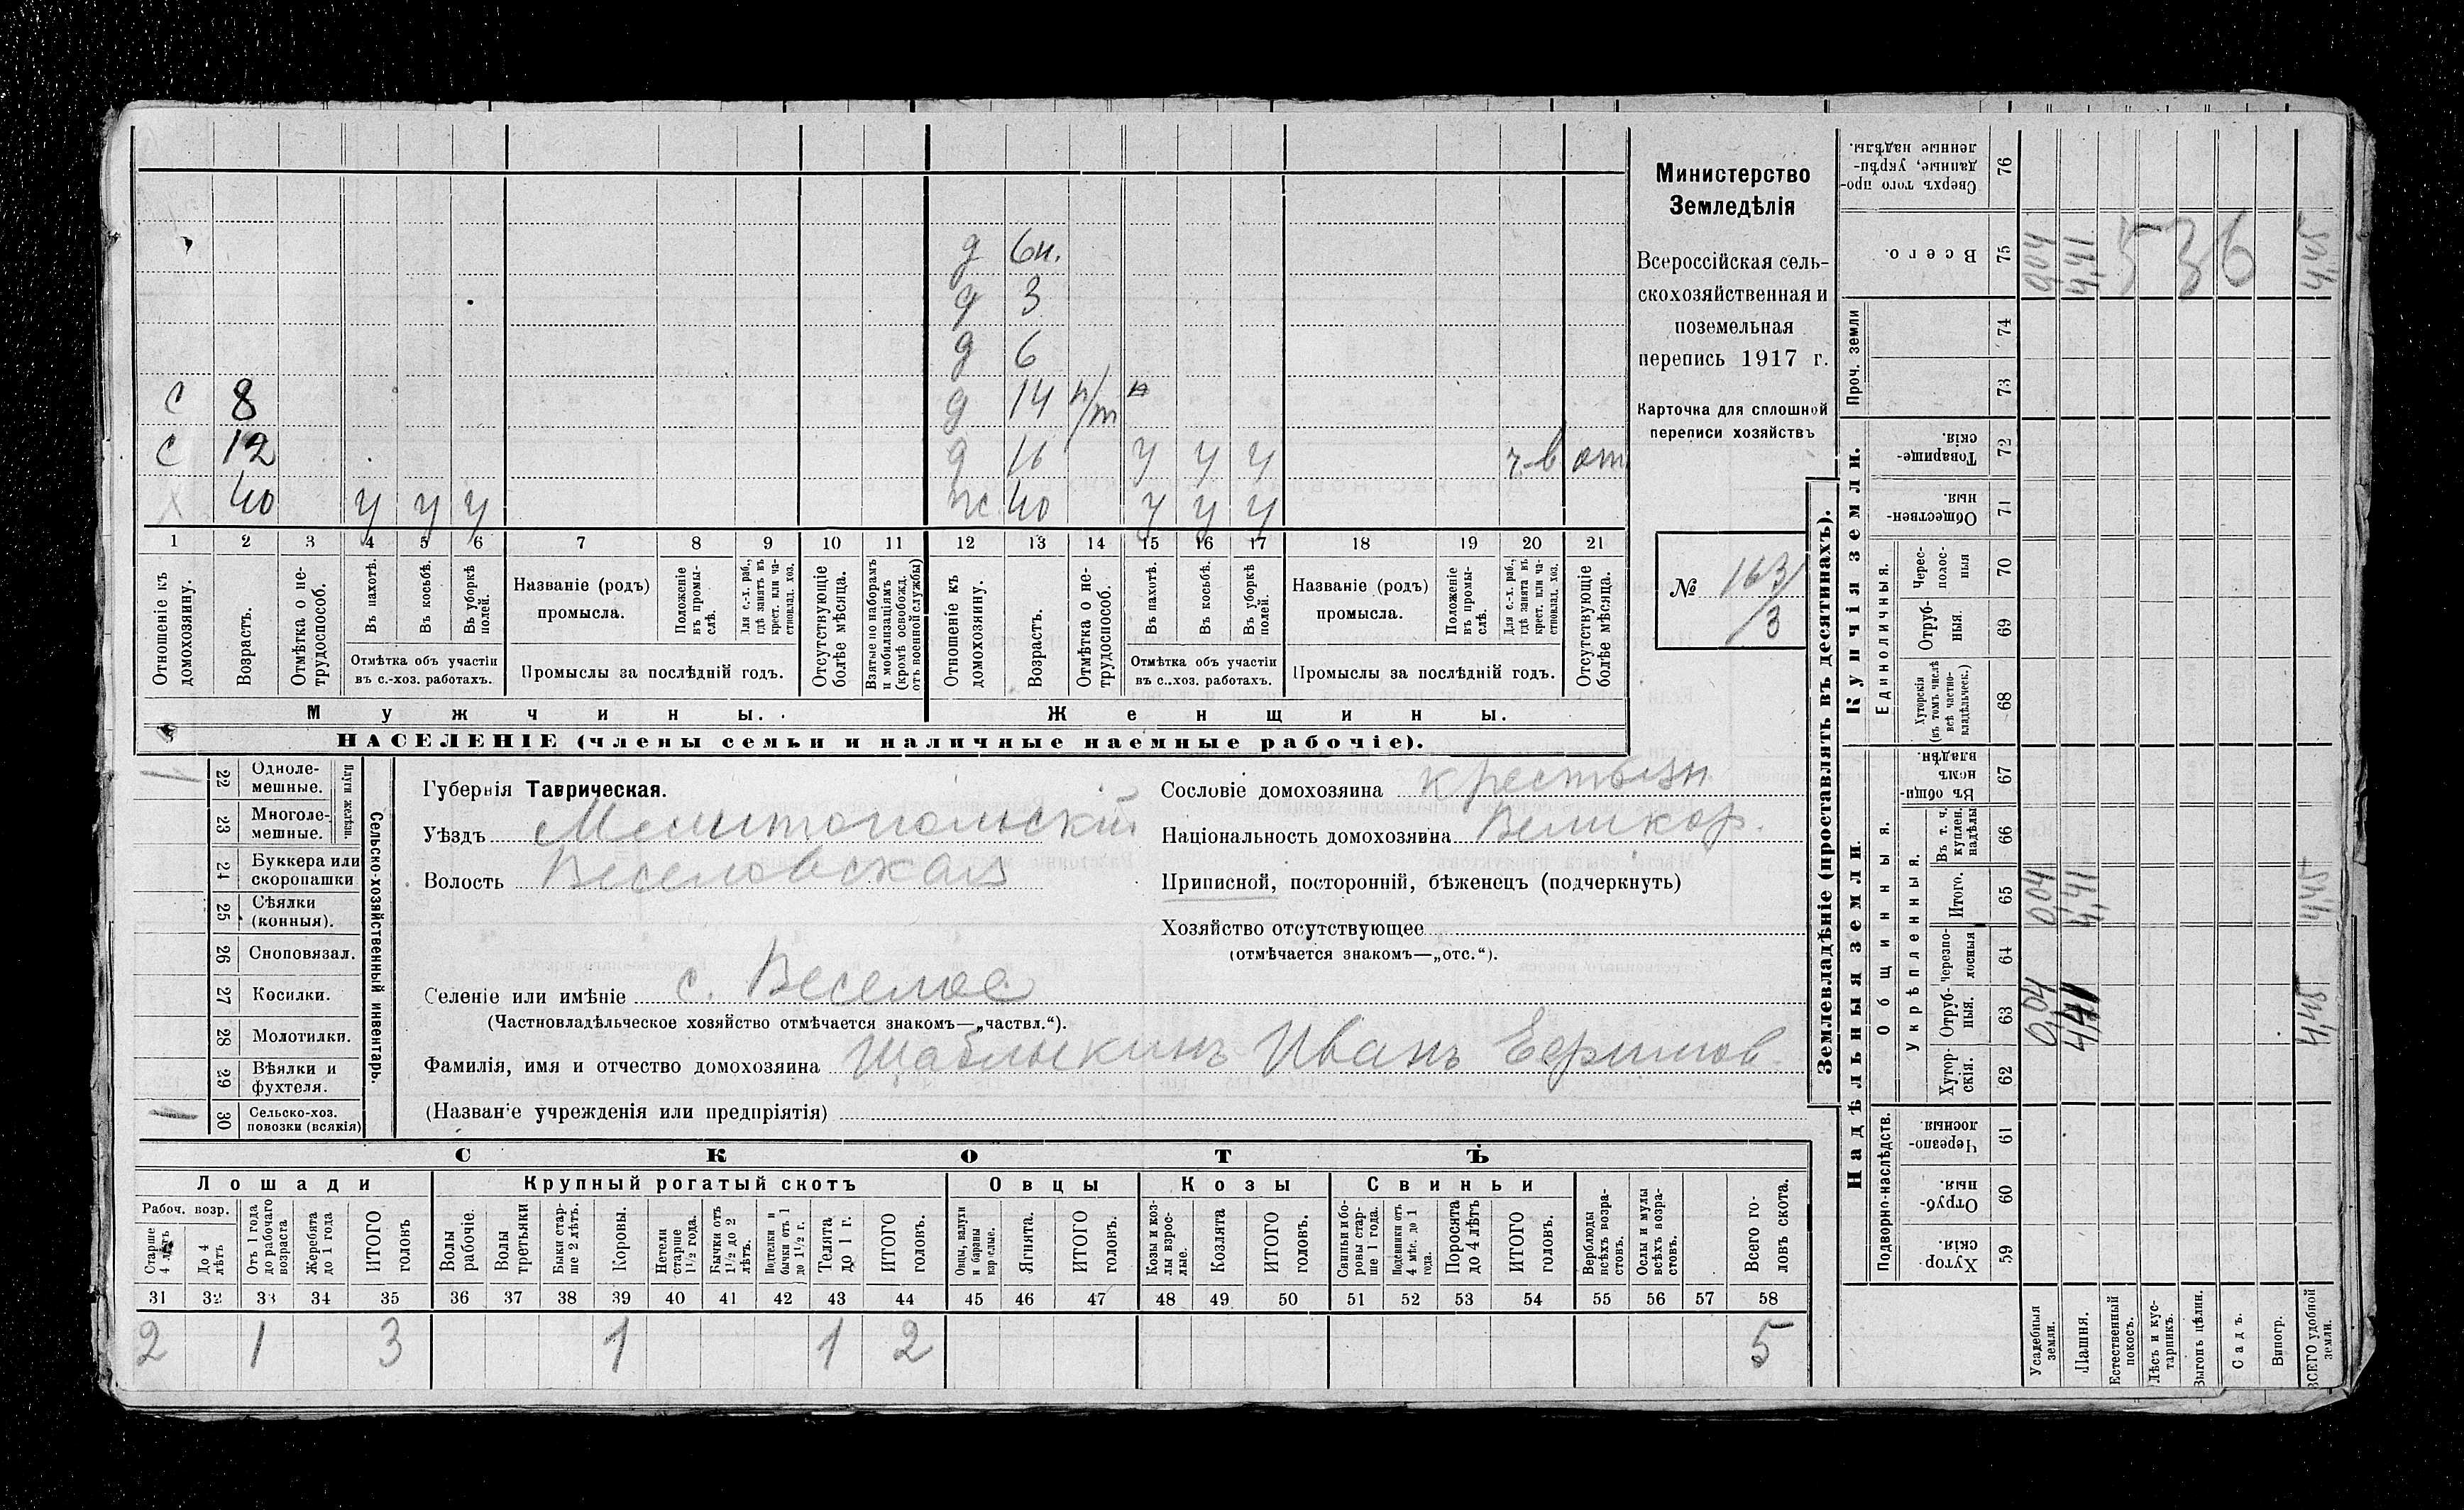 д 6н.
д 3
д 6
с 8 д 14 н/т
с 12 д 16 у у у г.-в от
х 40 у у у ж 40 у у у
1 2 3 4 5 6 7 8 9 10 11 12 13 14 15 16 17 18 19 20 21
Отношеніе къ домохозяину.
Возрастъ.
Отмѣтка о не-трудоспособ.
Въ пахотѣ.
Въ косьбѣ.
Въ уборкѣ полей.
Отмѣтка объ участіи
въ с.-хоз. работахъ.
Названіе (родъ)
промысла.
Положеніе въ промы-слѣ.
Для с.-х. раб., гдѣ занятъ въ крест. или ча-стновлад. хоз.
Промыслы за послѣдній годъ.
Отсутствующіе болѣе мѣсяца.
Взятые по наборамъ и мобилизаціямъ (кромѣ освобожд. отъ военной службы)
Отношеніе къ домохозяину.
Возрастъ.
Отмѣтка о не-трудоспособ.
Въ пахотѣ.
Въ косьбѣ.
Въ уборкѣ полей.
Отмѣтка объ участіи
въ с.-хоз. работахъ.
Названіе (родъ)
промысла.
Положеніе въ промы-слѣ.
Для с.-х. раб., гдѣ занята въ крест. или ча-стновлад. хоз.
Промыслы за послѣдній годъ.
Отсутствующіе болѣе мѣсяца.
Мужчины. Женщины.
НАСЕЛЕНІЕ (члены семьи и наличные наемные рабочіе).
Министерство
Земледѣлія
Всероссійская сель-
скохозяйственная и
поземельная
перепись 1917 г.
Карточка для сплошной
переписи хозяйствъ
№ 163/
/3
22 Одноле-мешные.
23 Многоле-мешные.
Плуги желѣзн.
24 Буккера или скоропашки
25 Сѣялки (конныя).
26 Сноповязал.
27 Косилки.
28 Молотилки.
29 Вѣялки и фухтеля.
30 Сельско-хоз. повозки (всякія)
Сельско-хозяйственный инвентарь.
Губернія Таврическая.
Уѣздъ Мелитопольскій
Волость Веселовская
Селеніе или имѣніе с. Веселое
(Частновладѣльческое хозяйство отмѣчается знакомъ—„частвл.“).
Фамилія, имя и отчество домохозяина Шаблыкинъ Иванъ Ефимов
(Названіе учрежденія или предпріятія)
Сословіе домохозяина крестьян
Національность домохозяина Великор.
Приписной, посторонній, бѣженецъ (подчеркнуть)
Хозяйство отсутствующее
(отмѣчается знакомъ—„отс.“).
СКОТЪ
Лошади Крупный рогатый скотъ Овцы Козы Свиньи
Рабоч. возр.
Старше 4 лѣтъ
До 4 лѣтъ
Отъ 1 года до рабочаго возраста
Жеребята до 1 года
ИТОГО головъ
Волы рабочіе.
Волы третьяки
Быки стар-ше 2 лѣтъ.
Коровы.
Нетели старше 1½ года.
Бычки отъ 1½ до 2 лѣтъ.
Подтелки и бычки отъ 1 до 1½ г.
Телята до 1 г.
ИТОГО головъ.
Овцы, валухи и бараны взрослые.
Ягнята.
ИТОГО головъ.
Козы и коз-лы взрос-лые.
Козлята
ИТОГО головъ.
Свиньи и бо-ровы стар-ше 1 года.
Подсвинки отъ 4 мѣс. до 1 года.
Поросята до 4 лѣтъ
ИТОГО головъ.
Верблюды всѣхъ возра-стовъ.
Ослы и мулы всѣхъ возра-стовъ.
Всего го-ловъ скота.
31 32 33 34 35 36 37 38 39 40 41 42 43 44 45 46 47 48 49 50 51 52 53 54 55 56 57 58
2 1 3 1 1 2 5
Землевладѣніе (проставлять въ десятинахъ).
Надѣльныя земли.
Купчія земли.
Проч. земли
Подворно-наслѣдств.
Общинныя.
Укрѣпленныя.
Единоличныя.
Хутор-скія. 59
Отруб-ныя. 60
Черезпо-лосныя 61
Хутор-скія. 62
Отруб-ныя. 63 0,04 4,41 4,45
Черезпо-лосныя 64
Итого. 65 0,04 4,41 4,45
Въ т. ч. куплен. надѣлы 66
Въ общин-номъ владѣн. 67
Хуторскія (въ томъ числѣ всѣ частно-владѣльческ.) 68
Отруб-ныя. 69
Черес-полос-ныя 70
Обществен-ныя. 71
Товарище-скія. 72
73
74
Всего. 75 0,04 4,41 536 4,45
Сверхъ того про-данные, укрѣп-ленные надѣлы. 76
Усадебныя земли.
Пашня.
Естественный покосъ.
Лѣсъ и кус-тарникъ.
Выгонъ цѣлин.
Садъ.
Виногр.
ВСЕГО удобной земли.